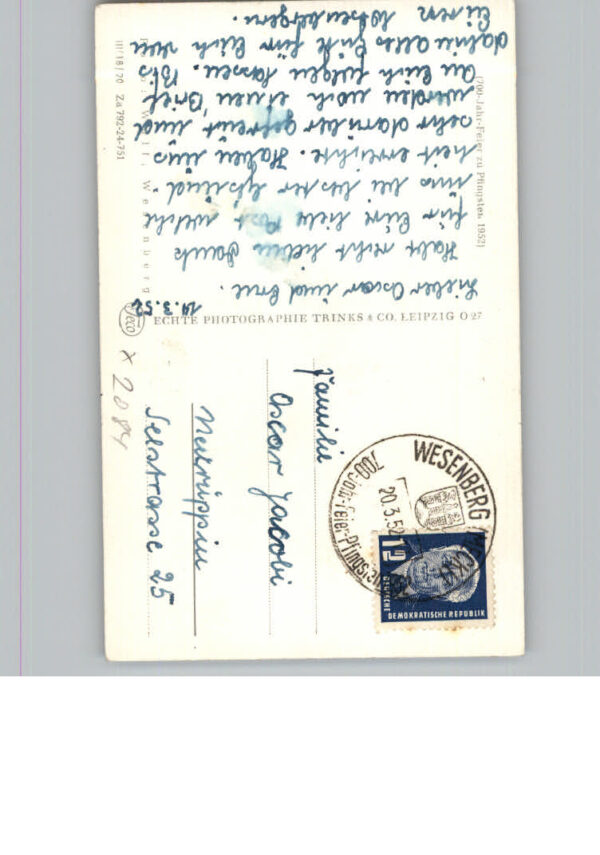 19.3.52
Lieber Oscar und Erne.
Habt recht lieben Dank
für Eure liebe Post welche
uns bei bester Gesund-
heit erreichte. Haben uns
sehr darüber gefreut und
werden noch einen Brief
an Euch folgen lassen. Bis
dahin alles Gute für Euch von
Euren Wesenbergern.
(700-Jahr-Feier zu Pfingsten 1952)
Wesenberg
III/18/70 Za 792-24-751
ECHTE PHOTOGRAPHIE TRINKS & CO. LEIPZIG O 27
Familie
Oscar Jacobi
Neuruppin
Seestrasse 25
x 2084
WESENBERG
20.3.52
700-Jahr-Feier-Pfingsten
12
DEUTSCHE
DEMOKRATISCHE REPUBLIK